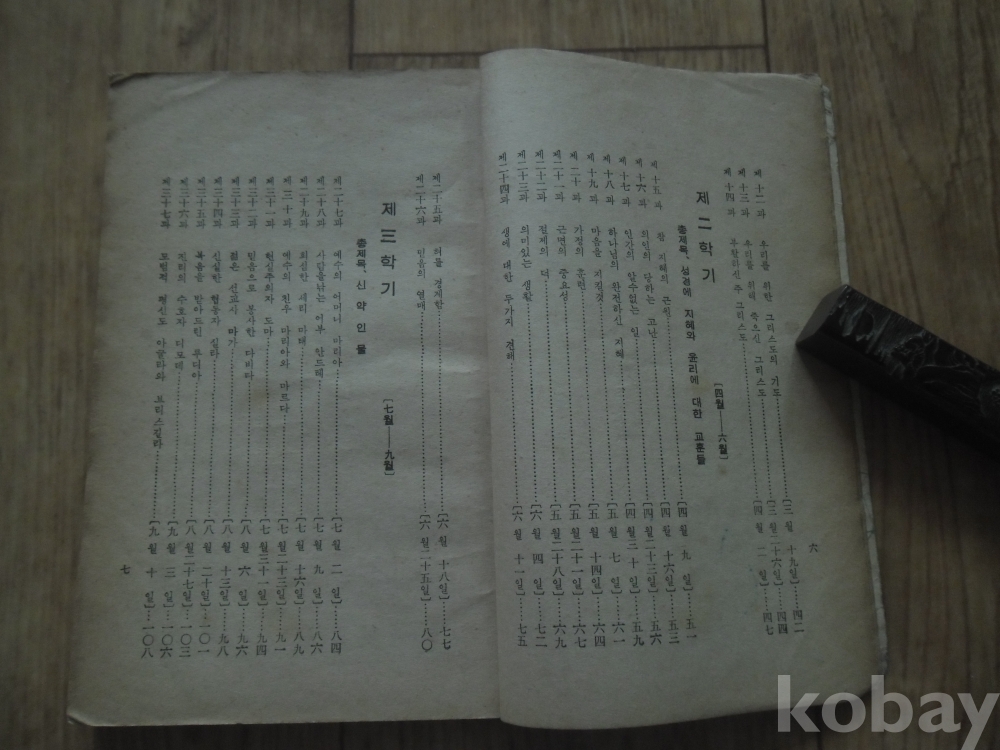 제十二과 우리를 위한 그리스도의 기도……[三월 十九일]…四二
제十三과 우리를 위해 죽으신 그리스도……[三월二十六일]…四四
제十四과 부활하신 주 그리스도……[四월 二일]…四七
제 二 학 기 [四월——六월]
총제목、성경에 지혜와 윤리에 대한 교훈들
제十五과 참 지혜의 근원……[四월 九일]…五一
제十六과 의인의 당하는 고난……[四월 十六일]…五三
제十七과 인간의 알수없는 일……[四월二十三일]…五六
제十八과 하나님의 완전하신 지혜……[四월 三十일]…五九
제十九과 마음을 지킬것……[五월 七일]…六一
제二十과 가정의 훈련……[五월 十四일]…六四
제二十一과 근면의 중요성……[五월二十一일]…六七
제二十二과 절제의 덕……[五월二十八일]…六九
제二十三과 의미있는 생활……[六월 四일]…七二
제二十四과 생에 대한 두가지 견해……[六월 十一일]…七五
六
제二十五과 의를 경계함……[六월 十八일]…七七
제二十六과 믿음의 열매……[六월二十五일]…八〇
제 三 학 기 [七월——九월]
총제목、신약인물
제二十七과 예수의 어머니 마리아……[七월 二일]…八四
제二十八과 사람을낚는 어부 안드레……[七월 九일]…八六
제二十九과 회심한 세리 마태……[七월 十六일]…八九
제三十과 예수의 친우 마리아와 마르다……[七월二十三일]…九一
제三十一과 현실주의자 도마……[七월三十일]…九四
제三十二과 믿음으로 봉사한 다비다……[八월 六일]…九六
제三十三과 젊은 선교사 마가……[八월 十三일]…九八
제三十四과 신실한 협동자 실라……[八월 二十일]…一〇一
제三十五과 복음을 받아드린 루디아……[八월二十七일]…一〇三
제三十六과 진리의 수호자 디모데……[九월 三일]…一〇六
제三十七과 모범적 평신도 아굴라와 브리스길라……[九월 十일]…一〇八
七
kobay